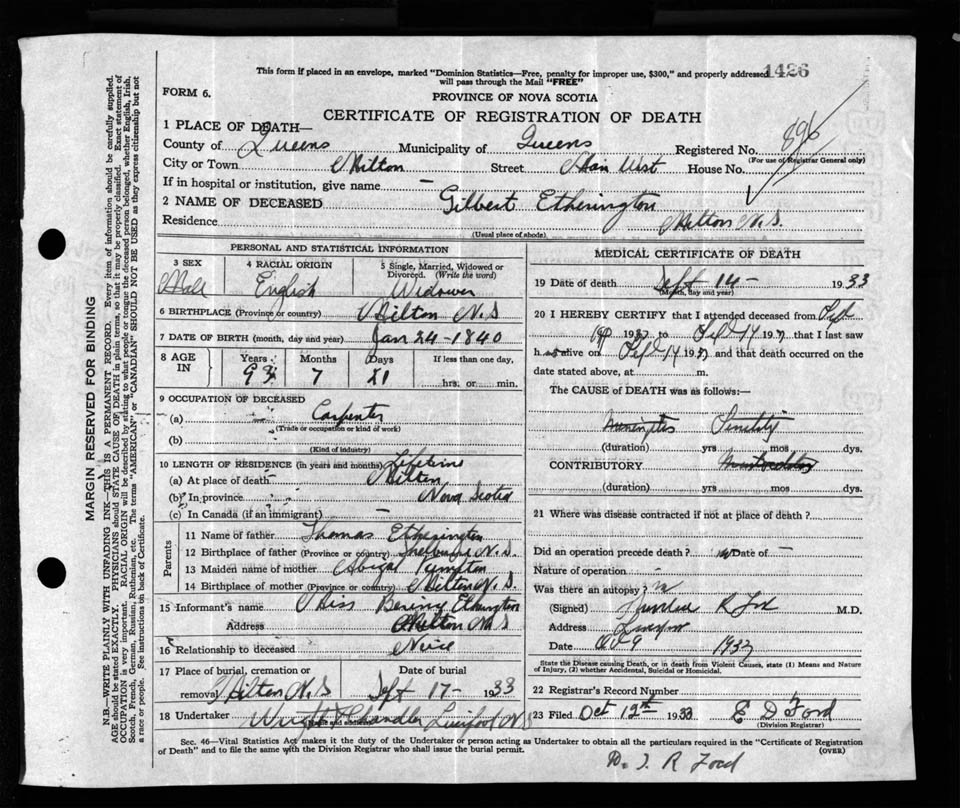 This form if placed in an envelope, marked "Dominion Statistics—Free, penalty for improper use, $300," and properly addressed
will pass through the Mail "FREE"
1426
FORM 6.
PROVINCE OF NOVA SCOTIA
CERTIFICATE OF REGISTRATION OF DEATH
896
1 PLACE OF DEATH—
County of Queens Municipality of Queens Registered No.
(For use of Registrar General only)
City or Town Milton Street Main West House No.
If in hospital or institution, give name —
2 NAME OF DECEASED Gilbert Etherington
Residence Milton N.S.
(Usual place of abode)
PERSONAL AND STATISTICAL INFORMATION
3 SEX 4 RACIAL ORIGIN 5 Single, Married, Widowed or Divorced. (Write the word)
Male English Widower
6 BIRTHPLACE (Province or country) Milton N.S
7 DATE OF BIRTH (month, day and year) Jan 24-1840
8 AGE IN Years Months Days If less than one day,
93 7 hrs. or min.
9 OCCUPATION OF DECEASED
(a) Carpenter
(Trade or occupation or kind of work)
(b)
(Kind of industry)
10 LENGTH OF RESIDENCE (in years and months) Lifetime
(a) At place of death Milton
(b) In province Nova Scotia
(c) In Canada (if an immigrant) —
Parents
11 Name of father Thomas Etherington
12 Birthplace of father (Province or country) Shelburne N.S.
13 Maiden name of mother Abigal Kempton
14 Birthplace of mother (Province or country) Milton N.S.
15 Informant's name Miss Etherington
Address Milton N.S
16 Relationship to deceased Niece
17 Place of burial, cremation or removal Date of burial
Milton N.S Sept 17- 1933
18 Undertaker Chandler Liverpool N.S
MEDICAL CERTIFICATE OF DEATH
19 Date of death Sept 14- 1933
(Month, day and year)
20 I HEREBY CERTIFY that I attended deceased from Sept
19 to Sept 14 19 , that I last saw
h alive on Sept 14 19 and that death occurred on the
date stated above, at m.
The CAUSE of DEATH was as follows:—
Senility
(duration) yrs mos dys.
CONTRIBUTORY
(duration) yrs mos dys.
21 Where was disease contracted if not at place of death?
Did an operation precede death? Date of —
Nature of operation
Was there an autopsy?
(Signed) M.D.
Address
Date Oct 9 1933
State the Disease causing Death, or in death from Violent Causes, state (1) Means and Nature
of Injury, (2) whether Accidental, Suicidal or Homicidal.
22 Registrar's Record Number
23 Filed Oct 12th 1933 E D Ford
(Division Registrar)
Sec. 46—Vital Statistics Act makes it the duty of the Undertaker or person acting as Undertaker to obtain all the particulars required in the "Certificate of Registration
of Death" and to file the same with the Division Registrar who shall issue the burial permit.
(OVER)
MARGIN RESERVED FOR BINDING
N.B.—WRITE PLAINLY WITH UNFADING INK—THIS IS A PERMANENT RECORD. Every item of information should be carefully supplied.
AGE should be stated EXACTLY. PHYSICIANS should STATE CAUSE OF DEATH in plain terms, so that it may be properly classified. Exact statement of
OCCUPATION is very important. RACIAL ORIGIN will be described by stating to what people or tongue the deceased person belonged, whether English, Irish,
Scotch, French, German, Russian, Ruthenian, etc. The terms "AMERICAN" or "CANADIAN" SHOULD NOT BE USED as they express citizenship but not
a race or people. See instructions on back of Certificate.